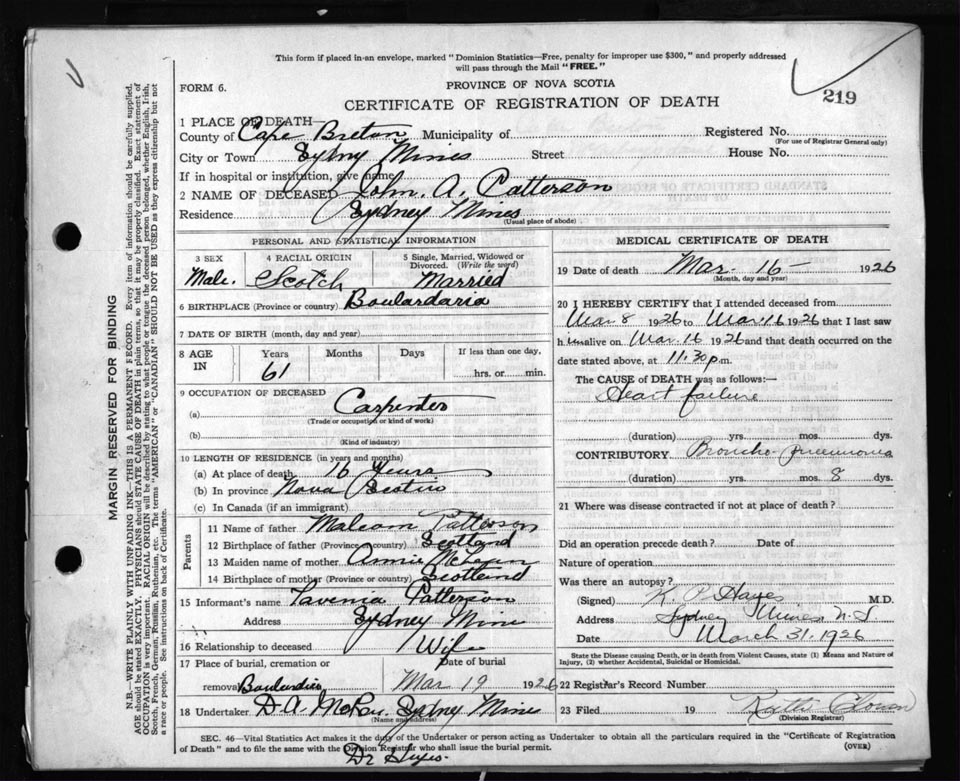 This form if placed in an envelope, marked "Dominion Statistics—Free, penalty for improper use $300," and properly addressed
will pass through the Mail "FREE."
FORM 6.
PROVINCE OF NOVA SCOTIA
219
CERTIFICATE OF REGISTRATION OF DEATH
1 PLACE OF DEATH—
County of Cape Breton Municipality of Registered No.
(For use of Registrar General only)
City or Town Sydny Mines Street House No.
If in hospital or institution, give name
2 NAME OF DECEASED John. A. Patterson
Residence Sydney Mines
(Usual place of abode)
PERSONAL AND STATISTICAL INFORMATION
3 SEX 4 RACIAL ORIGIN 5 Single, Married, Widowed or
Divorced. (Write the word)
Male. Scotch Married
6 BIRTHPLACE (Province or country) Boulardaria
7 DATE OF BIRTH (month, day and year)
8 AGE Years Months Days If less than one day,
IN 61 hrs. or min.
9 OCCUPATION OF DECEASED
(a) Carpenter
(Trade or occupation or kind of work)
(b)
(Kind of industry)
10 LENGTH OF RESIDENCE (in years and months)
(a) At place of death 16 Years
(b) In province Nova Scotia
(c) In Canada (if an immigrant)
Parents
11 Name of father Malcom Patterson
12 Birthplace of father (Province or country) Scotland
13 Maiden name of mother Annie
14 Birthplace of mother (Province or country) Scotland
15 Informant's name Tavenia Patterson
Address Sydney Mine
16 Relationship to deceased Wife
17 Place of burial, cremation or Date of burial
removal Mar 19 1926
18 Undertaker D. A. McRae Sydney Mines
(Name and address)
MEDICAL CERTIFICATE OF DEATH
19 Date of death Mar. 16 — 1926
(Month, day and year)
20 I HEREBY CERTIFY that I attended deceased from
Mar 8 1926 to Mar 16 1926 that I last saw
him alive on Mar. 16 1926 and that death occurred on the
date stated above, at 11.30 p.m.
The CAUSE of DEATH was as follows:—
Heart failure
(duration) yrs. mos. dys.
CONTRIBUTORY Broncho-pneumonia
(duration) yrs. mos. 8 dys.
21 Where was disease contracted if not at place of death?
Did an operation precede death? Date of
Nature of operation
Was there an autopsy?
(Signed) K. P. Hayes M.D.
Address Sydney Mines N.S
Date March 31. 1926
State the Disease causing Death, or in death from Violent Causes, state (1) Means and Nature of
Injury, (2) whether Accidental, Suicidal or Homicidal.
22 Registrar's Record Number
23 Filed 19
(Division Registrar)
SEC. 46—Vital Statistics Act makes it the duty of the Undertaker or person acting as Undertaker to obtain all the particulars required in the "Certificate of Registration
of Death" and to file the same with the Division Registrar who shall issue the burial permit. (OVER)
Dr
MARGIN RESERVED FOR BINDING
N.B.—WRITE PLAINLY WITH UNFADING INK—THIS IS A PERMANENT RECORD. Every item of information should be carefully supplied.
AGE should be stated EXACTLY. PHYSICIANS should STATE CAUSE OF DEATH in plain terms, so that it may be properly classified. Exact statement of
OCCUPATION is very important. RACIAL ORIGIN will be described by stating to what people or tongue the deceased person belonged, whether English, Irish,
Scotch, French, German, Russian, Ruthenian, etc. The terms "AMERICAN" or "CANADIAN" SHOULD NOT BE USED as they express citizenship but not
a race or people. See instructions on back of Certificate.